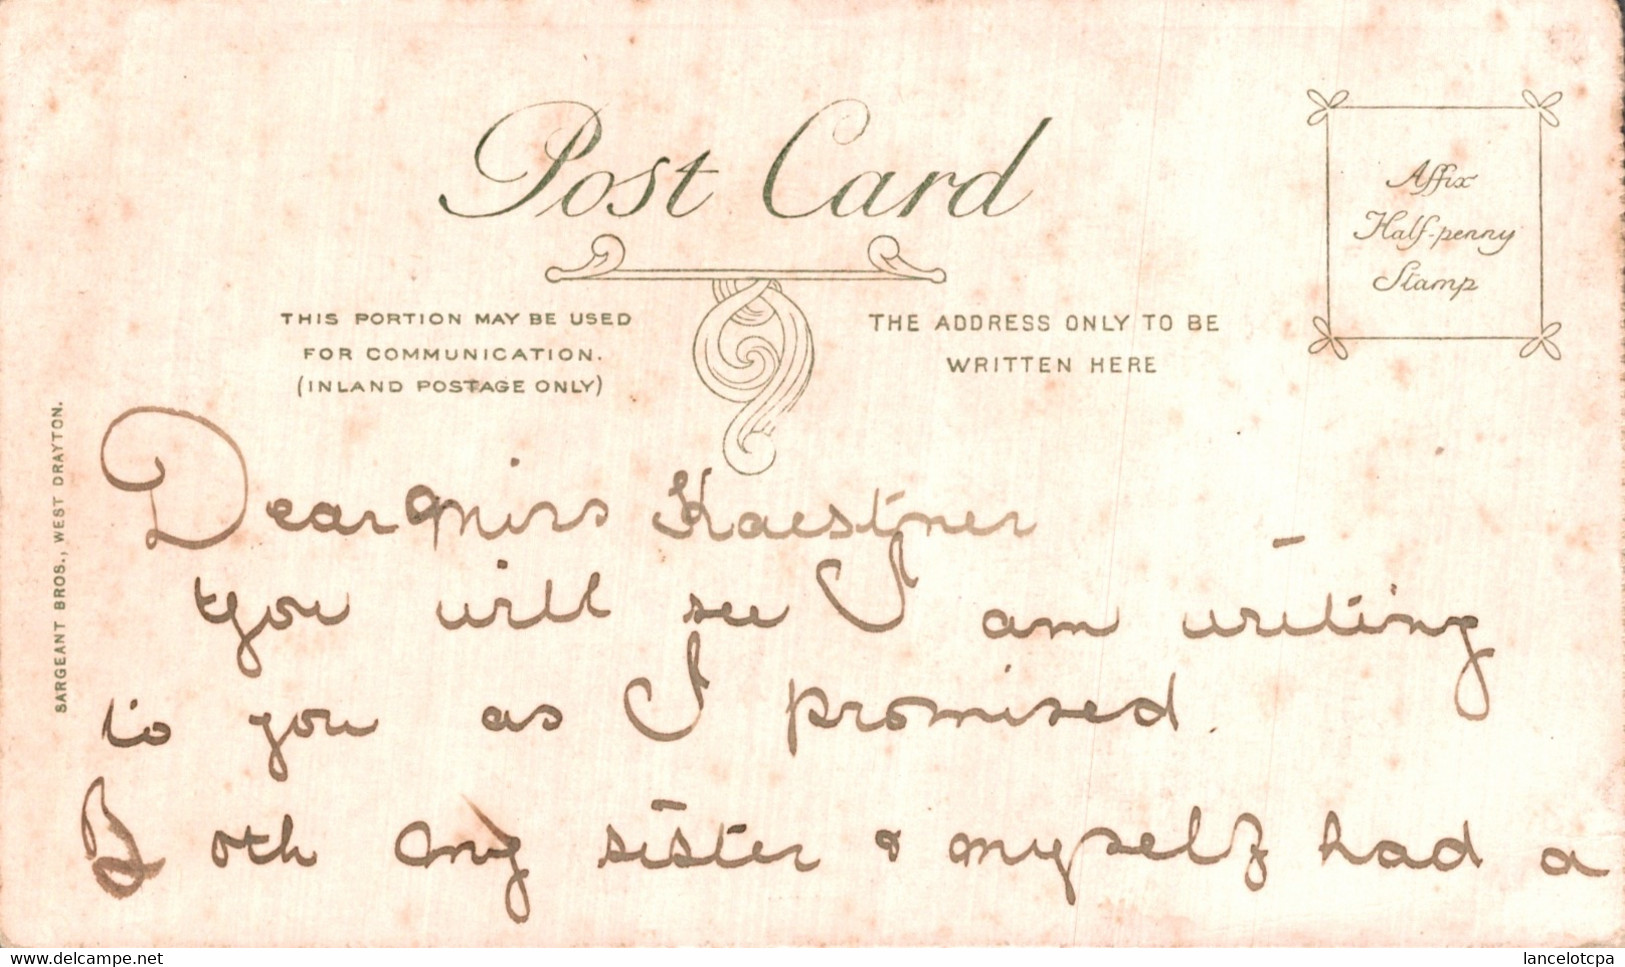 Post Card
Affix
Half-penny
Stamp
THIS PORTION MAY BE USED
FOR COMMUNICATION.
(INLAND POSTAGE ONLY)
THE ADDRESS ONLY TO BE
WRITTEN HERE
SARGEANT BROS., WEST DRAYTON.
Dear Miss Kaestner
You will see I am writing
to you as I promised.
Both my sister & myself had a
delcampe.net
lancelotcpa